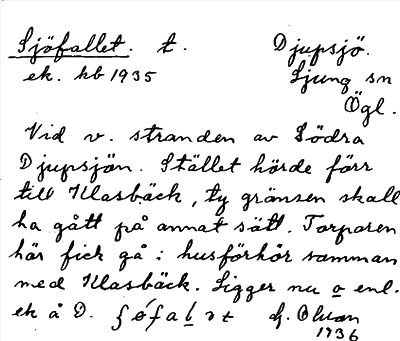 Sjöfallet. t. Djupsjö.
ek. kb 1935 Ljung sn
Ögl.
Vid v. stranden av Södra
Djupsjön. Stället hörde förr
till Klasbäck, ty gränsen skall
ha gått på annat sätt. Torparen
här fick gå i husförhör samman
med Klasbäck. Ligger nu o enl.
ek å D. 
1936